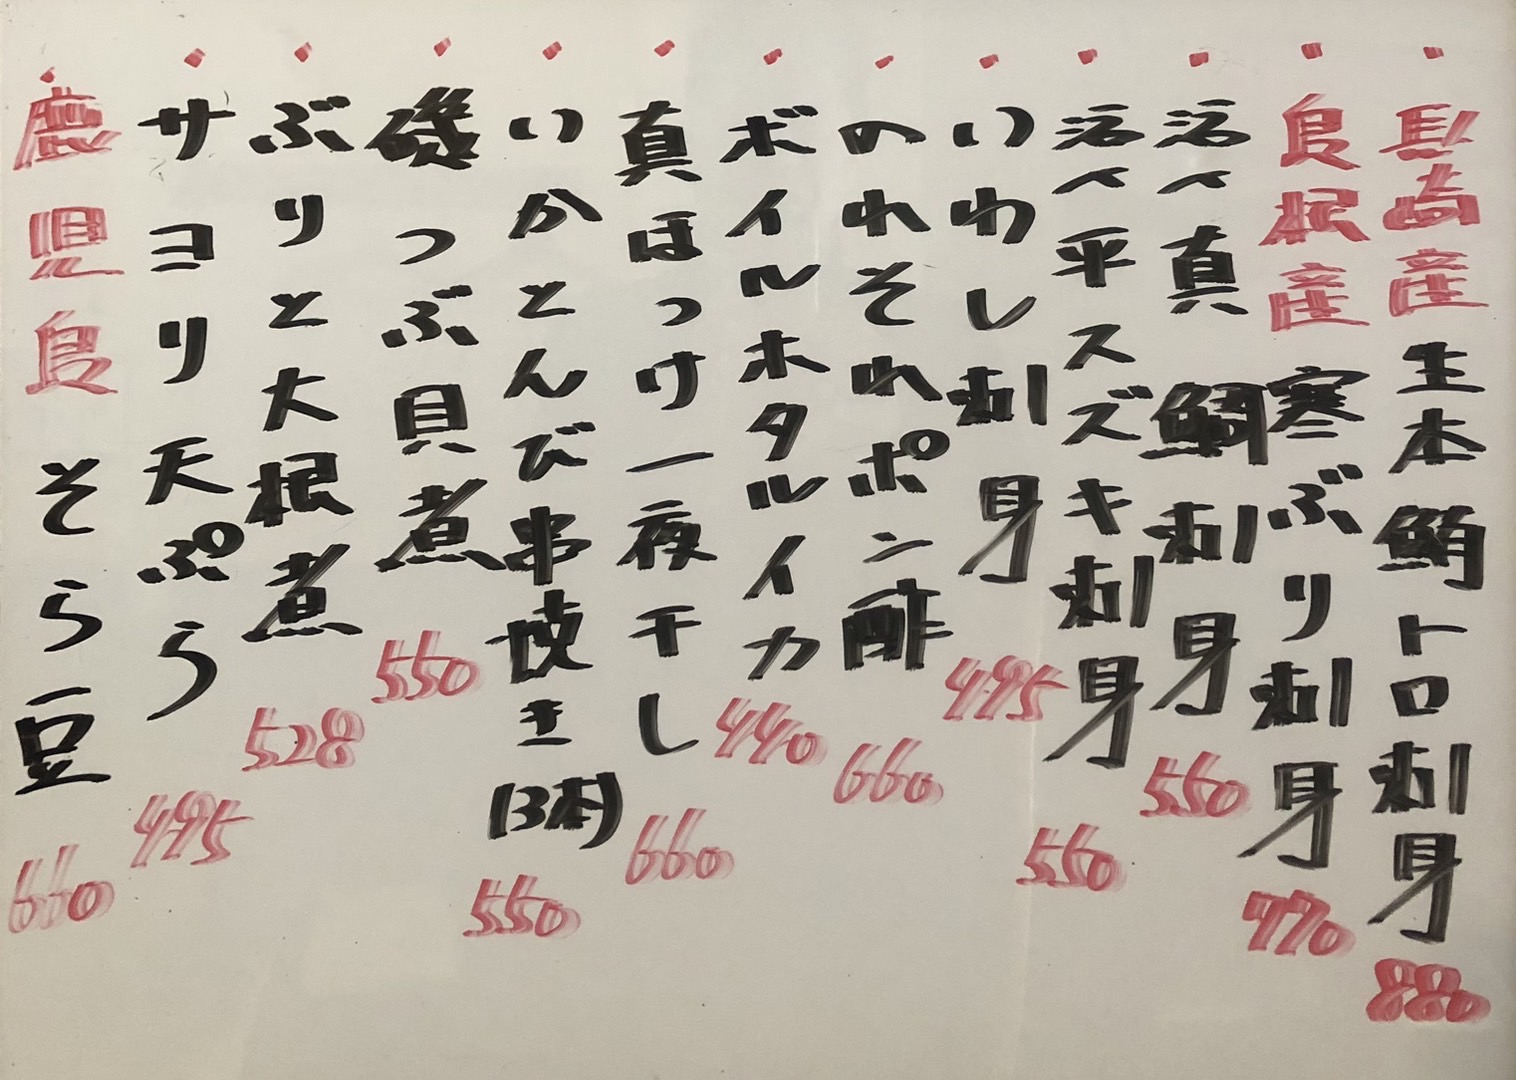 長崎産 生本鮪トロ刺身 880
島根産 寒ぶり刺身 770
活〆真鯛刺身 550
活〆平スズキ刺身 550
いわし刺身 495
のれそれポン酢 660
ボイルホタルイカ 440
真ほっけ一夜干し 660
いかとんび串焼き(3本) 550
磯つぶ貝煮 550
ぶりと大根煮 528
サヨリ天ぷら 495
鹿児島 そら豆 660